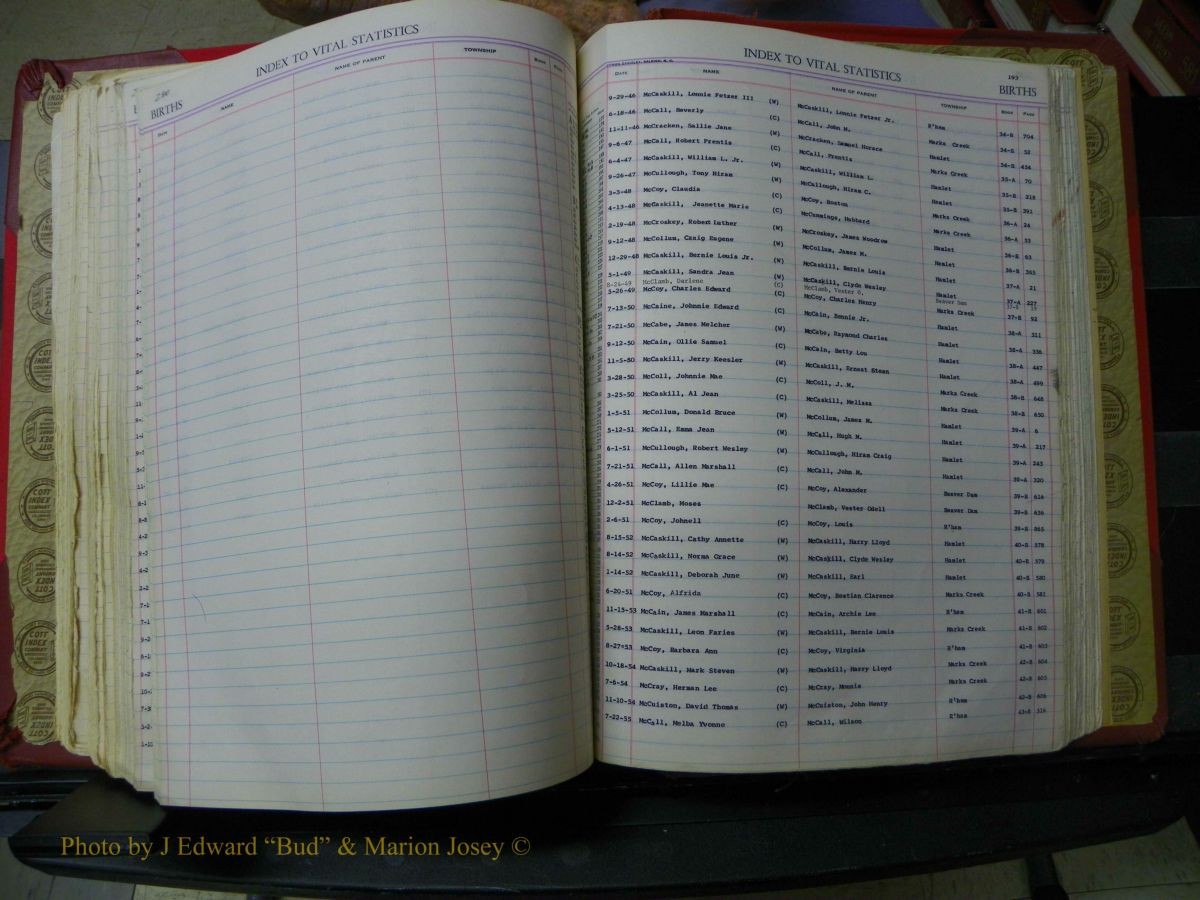 INDEX TO VITAL STATISTICS
BIRTHS
NAME NAME OF PARENT TOWNSHIP
INDEX TO VITAL STATISTICS
193
BIRTHS
DATE NAME NAME OF PARENT TOWNSHIP BOOK PAGE
9-29-46 McCaskill, Lonnie Fetzer III (W) McCaskill, Lonnie Fetzer Jr. R'ham 34-B 704
6-18-46 McCall, Beverly (C) McCall, John M. Marks Creek 34-B 52
11-11-46 McCracken, Sallie Jane (W) McCracken, Samuel Horace Hamlet 34-B 454
9-6-47 McCall, Robert Prentis (C) McCall, Prentis Marks Creek 35-A 70
6-4-47 McCaskill, William L. Jr. (W) McCaskill, William L. Hamlet 35-B 218
9-26-47 McCullough, Tony Hiram (W) McCullough, Hiram C. Hamlet 35-B 391
3-3-48 McCoy, Claudia (C) McCoy, Boston Marks Creek 36-A 24
4-13-48 McCaskill, Jeanette Marie (C) McCummings, Hubbard Marks Creek 36-A 33
2-19-48 McCroskey, Robert Luther (W) McCroskey, James Woodrow Hamlet 36-B 63
9-12-48 McCollum, Craig Eugene (W) McCollum, James M. Hamlet 36-B 363
12-29-48 McCaskill, Bernie Louis Jr. (W) McCaskill, Bernie Louis Hamlet 37-A 21
5-1-49 McCaskill, Sandra Jean (W) McCaskill, Clyde Wesley Hamlet 37-A 227
8-24-49 McClamb, Darlene (C) McClamb, Vester O. Beaver Dam
3-26-49 McCoy, Charles Edward (C) McCoy, Charles Henry Marks Creek 37-B 92
7-13-50 McCaine, Johnnie Edward (C) McCain, Bennie Jr. Hamlet 38-A 311
7-21-50 McCabe, James Melcher (W) McCabe, Raymond Charles Hamlet 38-A 336
9-12-50 McCain, Ollie Samuel (C) McCain, Betty Lou Hamlet 38-A 447
11-5-50 McCaskill, Jerry Keesler (W) McCaskill, Ernest Steen Hamlet 38-A 499
3-28-50 McColl, Johnnie Mae (C) McColl, J. M. Marks Creek 38-B 648
3-25-50 McCaskill, Al Jean (C) McCaskill, Melissa Marks Creek 38-B 650
1-5-51 McCollum, Donald Bruce (W) McCollum, James M. Hamlet 39-A 6
5-12-51 McCall, Emma Jean (W) McCall, Hugh M. Hamlet 39-A 217
6-1-51 McCullough, Robert Wesley (W) McCullough, Hiram Craig Hamlet 39-A 243
7-21-51 McCall, Allen Marshall (C) McCall, John M. Hamlet 39-A 320
4-26-51 McCoy, Lillie Mae (C) McCoy, Alexander Beaver Dam 39-B 616
12-2-51 McClamb, Moses McClamb, Vester Odell Beaver Dam 39-B 636
2-6-51 McCoy, Johnell (C) McCoy, Louis R'ham 39-B 865
8-15-52 McCaskill, Cathy Annette (W) McCaskill, Harry Lloyd Hamlet 40-B 378
8-14-52 McCaskill, Norma Grace (W) McCaskill, Clyde Wesley Hamlet 40-B 379
1-14-52 McCaskill, Deborah June (W) McCaskill, Earl Hamlet 40-B 580
6-20-51 McCoy, Alfrida (C) McCoy, Bostian Clarence Marks Creek 40-B 581
11-15-53 McCain, James Marshall (C) McCain, Archie Lee R'ham 41-B 601
5-28-53 McCaskill, Leon Faries (W) McCaskill, Bernie Louis Marks Creek 41-B 602
8-27-53 McCoy, Barbara Ann (C) McCoy, Virginia R'ham 41-B 603
10-18-54 McCaskill, Mark Steven (W) McCaskill, Harry Lloyd Marks Creek 42-B 604
7-6-54 McCray, Herman Lee (C) McCray, Nonnie Marks Creek 42-B 605
11-10-54 McCuiston, David Thomas (W) McCuiston, John Henry R'ham 42-B 606
7-22-55 McCall, Melba Yvonne (C) McCall, Wilson R'ham 43-B 316
Photo by J Edward “Bud” & Marion Josey ©